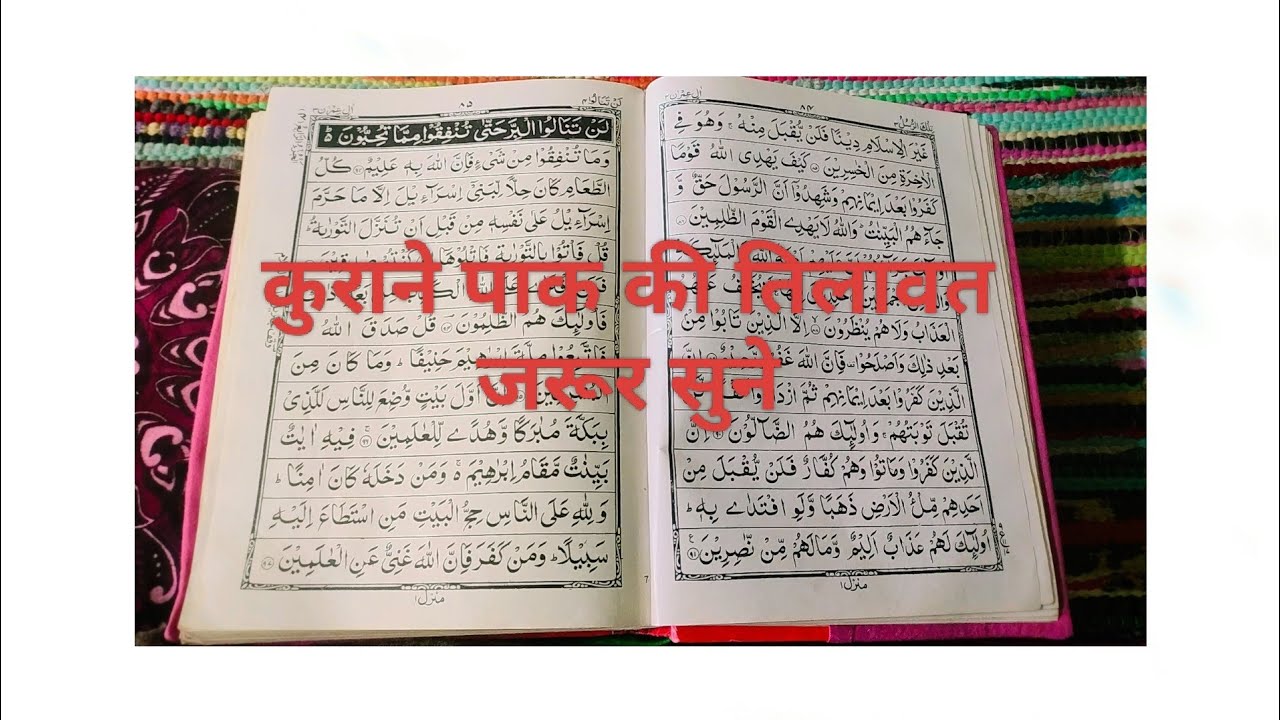 कुराने पाक की तिलावत
जरूर सुने
تِلْكَ الرُّسُلُ ٨٤ اٰل عمرٰن
غَیْرَ الْاِسْلَامِ دِیْنًا فَلَنْ یُّقْبَلَ مِنْهُ ۚ وَهُوَ فِی
الْاٰخِرَةِ مِنَ الْخٰسِرِیْنَ ۝ كَیْفَ یَهْدِی اللّٰهُ قَوْمًا
كَفَرُوْا بَعْدَ اِیْمَانِهِمْ وَشَهِدُوْٓا اَنَّ الرَّسُوْلَ حَقٌّ وَّ
جَآءَهُمُ الْبَیِّنٰتُ ؕ وَاللّٰهُ لَا یَهْدِی الْقَوْمَ الظّٰلِمِیْنَ ۝
اللّٰهِ وَالْمَلٰٓىِٕكَةِ
الْعَذَابُ وَلَا هُمْ یُنْظَرُوْنَ ۝ اِلَّا الَّذِیْنَ تَابُوْا مِنْۢ
بَعْدِ ذٰلِكَ وَاَصْلَحُوْا ۫ فَاِنَّ اللّٰهَ اِنَّ
الَّذِیْنَ كَفَرُوْا بَعْدَ اِیْمَانِهِمْ ثُمَّ
تُقْبَلَ تَوْبَتُهُمْ ۚ وَاُولٰٓىِٕكَ هُمُ الضَّآلُّوْنَ ۝ اِنَّ
الَّذِیْنَ كَفَرُوْا وَمَاتُوْا وَهُمْ كُفَّارٌ فَلَنْ یُّقْبَلَ مِنْ
اَحَدِهِمْ مِّلْءُ الْاَرْضِ ذَهَبًا وَّلَوِ افْتَدٰی بِهٖ ؕ
اُولٰٓىِٕكَ لَهُمْ عَذَابٌ اَلِیْمٌ وَّمَا لَهُمْ مِّنْ نّٰصِرِیْنَ ۝
منزل ١
لَنْ تَنَالُوا ٤ ٨٥ اٰل عمرٰن
لَنْ تَنَالُوا الْبِرَّ حَتّٰی تُنْفِقُوْا مِمَّا تُحِبُّوْنَ ؕ
وَمَا تُنْفِقُوْا مِنْ شَیْءٍ فَاِنَّ اللّٰهَ بِهٖ عَلِیْمٌ ۝ كُلُّ
الطَّعَامِ كَانَ حِلًّا لِّبَنِیْٓ اِسْرَآءِیْلَ اِلَّا مَا حَرَّمَ
اِسْرَآءِیْلُ عَلٰی نَفْسِهٖ مِنْ قَبْلِ اَنْ تُنَزَّلَ التَّوْرٰىةُ ؕ
قُلْ فَاْتُوْا بِالتَّوْرٰىةِ فَاتْلُوْهَاۤ
فَاُولٰٓىِٕكَ هُمُ الظّٰلِمُوْنَ ۝ قُلْ صَدَقَ اللّٰهُ
فَاتَّبِعُوْا مِلَّةَ اِبْرٰهِیْمَ حَنِیْفًا ؕ وَمَا كَانَ مِنَ
اَوَّلَ بَیْتٍ وُّضِعَ لِلنَّاسِ لَلَّذِیْ
بِبَكَّةَ مُبٰرَكًا وَّهُدًی لِّلْعٰلَمِیْنَ ۝ فِیْهِ اٰیٰتٌۢ
بَیِّنٰتٌ مَّقَامُ اِبْرٰهِیْمَ ۚ وَمَنْ دَخَلَهٗ كَانَ اٰمِنًا ؕ
وَلِلّٰهِ عَلَی النَّاسِ حِجُّ الْبَیْتِ مَنِ اسْتَطَاعَ اِلَیْهِ
سَبِیْلًا ؕ وَمَنْ كَفَرَ فَاِنَّ اللّٰهَ غَنِیٌّ عَنِ الْعٰلَمِیْنَ ۝
منزل ١